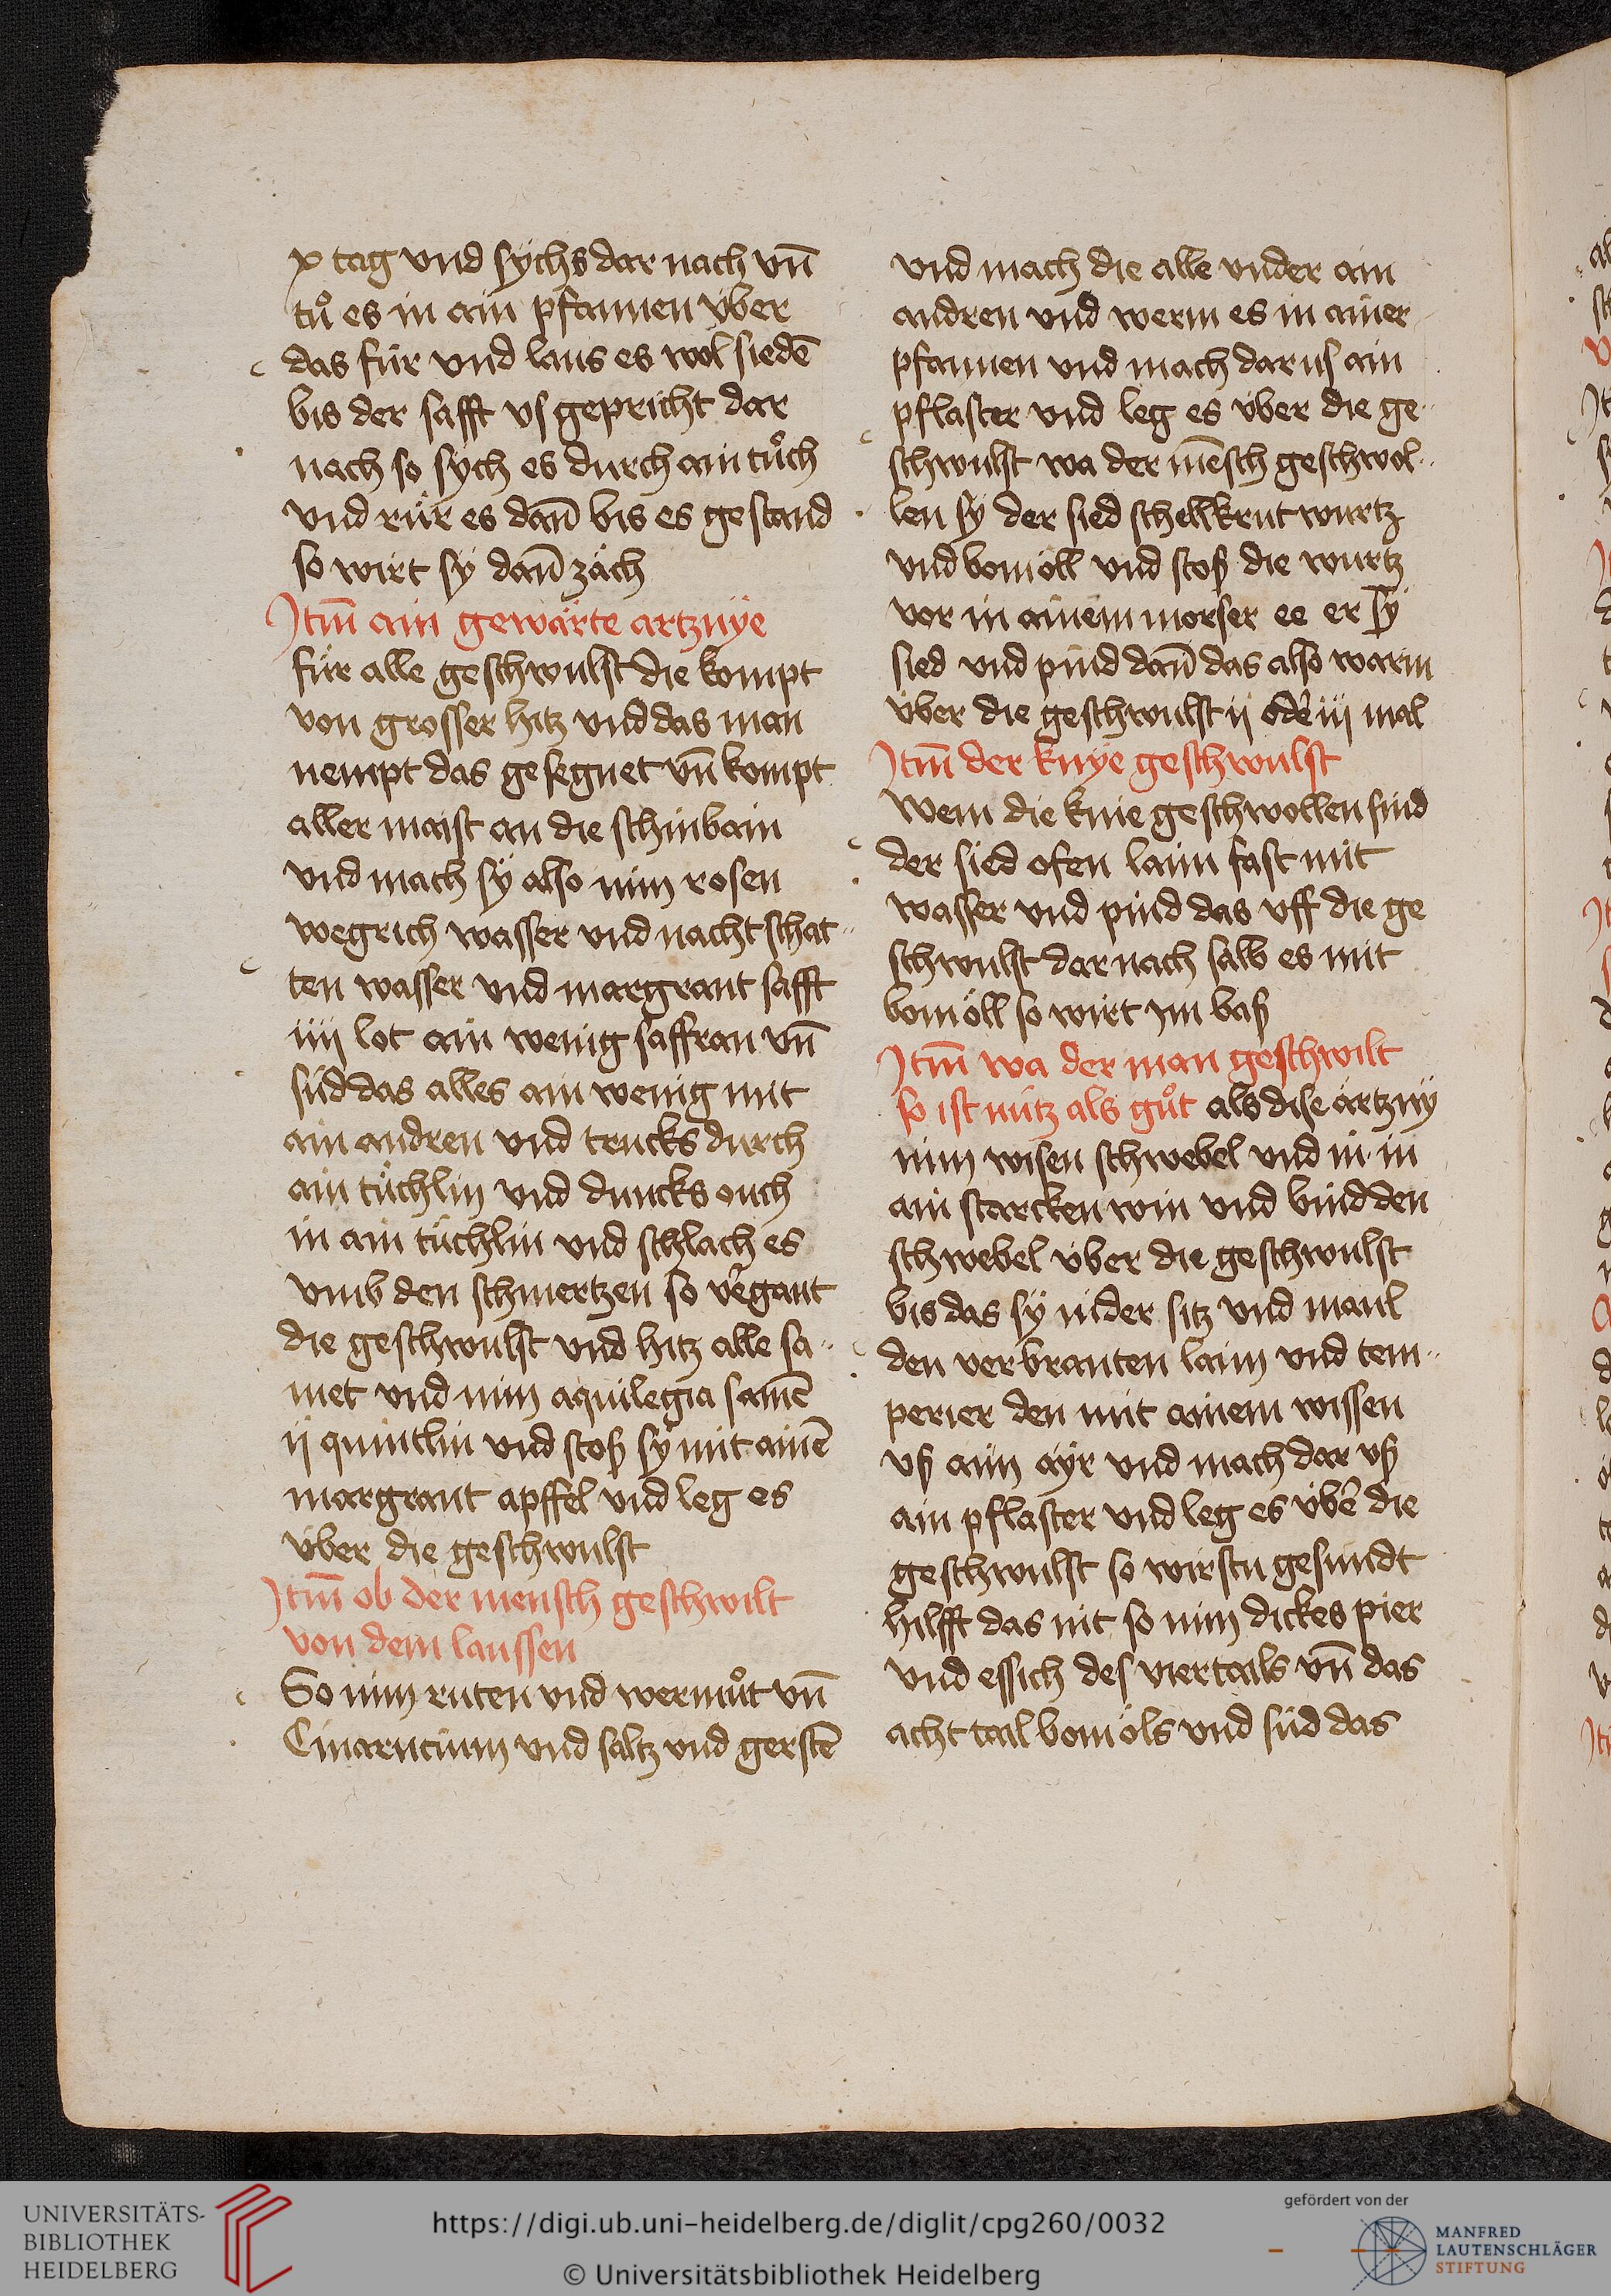 x tag vnd sychs dar nach vn̄
tuͦ es in ain pfannen vber
das für vnd laus es wol siedē
bis der safft vs gepricht dar
nach so sych es durch ain tuͦch
vnd ruͤr es dan̄ bis es gestand
so wirt sy dan̄ zäch
Itm̄ ain gewärte artznÿe
für alle geschwulst die kompt
von grosser hitz vnd das man
nempt das gesegnet vn̄ kompt
aller maist an die schinbain
vnd mach sÿ also nim rosen
wegrich wasser vnd nacht schat
ten wasser vnd margrant safft
iiij lot ain wenig saffran vn̄
süd das alles ain wenig mit
ain andren vnd trucks durch
ain tüchlin vnd duncks ouch
in ain tüchlin vnd schlach es
vmb den schmertzen so v̓gant
die geschwulst vnd hitz alle sa
met vnd nim aquilegia samē
ij quintlin vnd stoß sÿ mit ainē
margrant apffel vnd leg es
vber die geschwulst
Itm̄ ob der mensch geschwilt
von dem laussen
So nim ruten vnd wermuͦt vn̄
vnd saltz vnd gerstē
vnd mach die alle vnder ain
andren vnd werm es in ainer
pfannen vnd mach darus ain
pflaster vnd leg es vber die ge
schwulst wa der mēsch geschwol
len sÿ der sied schellkrut wurtz
vnd bomöll vnd stoß die wurtz
vor in ainem morser ee er sÿ
sied vnd pind dan̄ das also warm
vber die geschwulst ij od̓ iij mal
Itm̄ der knÿe geschwulst
Wem die knie geschwollen sind
der sied ofen laim fast mit
wasser vnd pind das vff die ge
schwulst dar nach salb es mit
bomöll so wirt im baß
Itm̄ wa der man geschwilt
so ist nütz als guͦt als dise artznÿ
nim wisen schwebel vnd in in
ain starcken win vnd bind den
schwebel vber die geschwulst
bis das sÿ nider sitz vnd maul
den verbranten laim vnd tem
perier den mit ainem wissen
vß aim ayr vnd mach dar vß
ain pflaster vnd leg es vb̓ die
geschwulst so wirstu gesundt
hilfft das nit so nim dickes pier
vnd essich des viertails vn̄ das
acht tail bomöls vnd süd das
UNIVERSITÄTS-
BIBLIOTHEK
HEIDELBERG
https://digi.ub.uni-heidelberg.de/diglit/cpg260/0032
© Universitätsbibliothek Heidelberg
gefördert von der
MANFRED
LAUTENSCHLÄGER
STIFTUNG